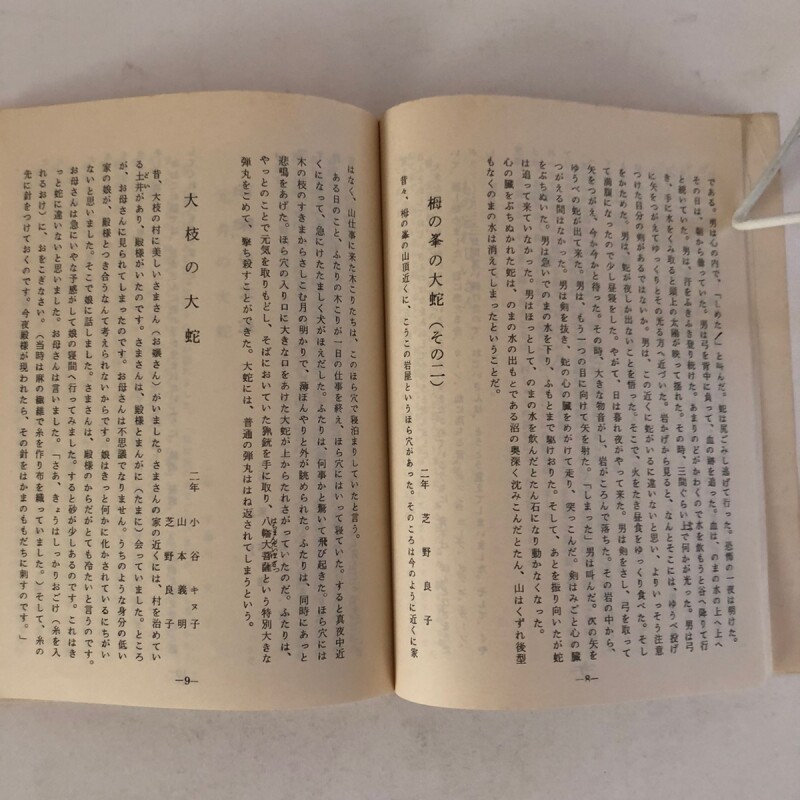 である。男は心の内で、「しめた！」と叫んだ。蛇は尻ごみし逃げて行った。恐怖の一夜は明けた。
その日は、朝から曇っていた。男は弓を背中に負って、血の跡を追った。血は、のまの水の上へ上へ
と続いていた。男は、汗をふきふき登り続けた。あまりのどがかわくので水を飲もうと谷へ降りて行
き、手に水をくみ取ると頭上の太陽が映って揺れた。その時、三間ぐらい上で何かが光った。男は弓
に矢をつがえてゆっくりとその光る方へ近づいた。岩かげから見ると、なんとそこには、ゆうべ投げ
つけた自分の剣があるではないか。男は、この近くに蛇がいるに違いないと思い、よりいっそう注意
をかためた。男は、蛇が夜しか出ないことを悟った。そこで、火をたき昼食をゆっくり食べた。そし
て満腹になったので少し昼寝をした。やがて、日は暮れ夜がやって来た。男は剣をさし、弓を取って
矢をつがえ、今か今かと待った。その時、大きな物音がし、岩がころんで落ちた。その岩の中から、
ゆうべの蛇が出て来た。男は、もう一つの目に向けて矢を射た。「しまった」男は叫んだ。次の矢を
つがえる間はなかった。男は剣を抜き、蛇の心の臓をめがけて走り、突っこんだ。剣はみごと心の臓
をぶちぬいた。男は急いでのまの水を下り、ふもとまで駆けおりた。そして、あとを振り向いたが蛇
は追って来ていなかった。男はほっとして、のまの水を飲んだとたん石になり動かなくなった。
心の臓をぶちぬかれた蛇は、のまの水の出もとである沼の奥深く沈みこんだとたん、山はくずれ後型
もなくのまの水は消えてしまったということだ。
栂の峯の大蛇（その二）
二年 芝野良子
昔々、栂の峯の山頂近くに、こうこの岩屋というほら穴があった。そのころは今のように近くに家
—8—
はなく、山仕事に来た木こりたちは、このほら穴で寝泊まりしていたと言う。
ある日のこと、ふたりの木こりが一日の仕事を終え、ほら穴にはいって寝ていた。すると真夜中近
くになって、急にけたたましく犬がほえだした。ふたりは、何事かと驚いて飛び起きた。ほら穴には
木の枝のすきまからさしこむ月の明かりで、薄ぼんやりと外が眺められた。ふたりは、同時にあっと
悲鳴をあげた。ほら穴の入り口に大きな口をあけた大蛇が上からたれさがっていたのだ。ふたりは、
やっとのことで元気を取りもどし、そばにおいていた猟銃を手に取り、八幡大菩薩という特別大きな
弾丸をこめて、撃ち殺すことができた。大蛇には、普通の弾丸ははね返されてしまうという。
大枝の大蛇
二年 小谷キヌ子
山本義明
芝野良子
昔、大枝の村に美しいさまさん（お嬢さん）がいました。さまさんの家の近くには、村を治めてい
る土井があり、殿様がいたのです。さまさんは、殿様とまんがに（たまに）会っていました。ところ
が、お母さんに見られてしまったのです。お母さんは不思議でなりません。うちのような身分の低い
家の娘が、殿様とつき合うなんて考えられないからです。娘はきっと何かに化かされているにちがい
ないと思いました。そこで娘に話しました。さまさんは、殿様のからだがとても冷たいと言うのです。
お母さんは急にいやな予感がして娘の寝間へ行ってみました。すると砂が少しあるのです。これはき
っと蛇に違いないと思いました。お母さんは言いました。「さあ、きょうはしっかりおごけ（糸を入
れるおけ）に、おをこぎなさい。（当時は麻の繊維で糸を作り布を織っていました。）そして、糸の
先に針をつけておくのです。今夜殿様が現われたら、その針をはかまのももだちに刺すのです。」
—9—